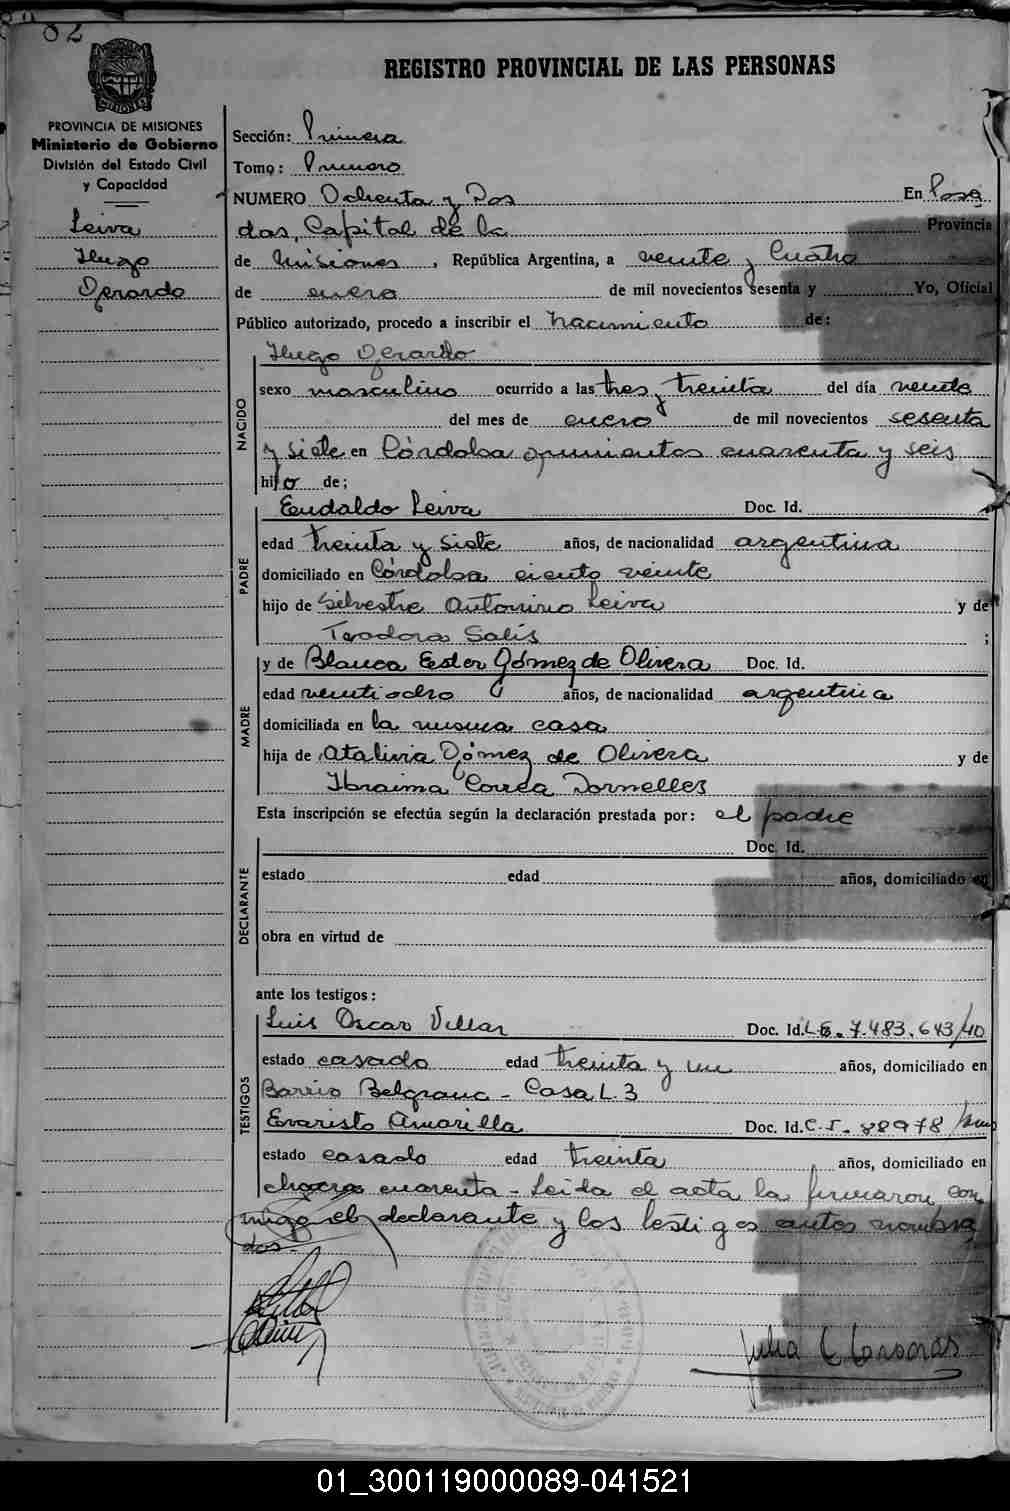 82
REGISTRO PROVINCIAL DE LAS PERSONAS
MISIONES
PROVINCIA DE MISIONES
Ministerio de Gobierno
División del Estado Civil
y Capacidad
Leiva
Hugo
Gerardo
Sección: Primera
Tomo: Primero
NUMERO Ochenta y Dos En Posa
das, Capital de la Provincia
de Misiones, República Argentina, a veinte y Cuatro
de enero de mil novecientos sesenta y Yo, Oficial
Público autorizado, procedo a inscribir el nacimiento de:
NACIDO
Hugo Gerardo
sexo masculino ocurrido a las tres y treinta del día veinte
del mes de enero de mil novecientos sesenta
y siete en Córdoba quinientos cuarenta y seis
hijo de;
PADRE
Eudaldo Leiva Doc. Id.
edad treinta y siete años, de nacionalidad argentina
domiciliado en Córdoba ciento veinte
hijo de Silvestre Antonino Leiva y de
Teodora Solis ;
MADRE
y de Blanca Ester Gómez de Olivera Doc. Id.
edad veintiocho años, de nacionalidad argentina
domiciliada en la misma casa
hija de Atalivia Gómez de Olivera y de
Ibraima Correa Dornelles
Esta inscripción se efectúa según la declaración prestada por: el padre
DECLARANTE
Doc. Id.
estado edad años, domiciliado en
obra en virtud de
ante los testigos:
TESTIGOS
Luis Oscar Villar Doc. Id. L.E. 7.483.643/40
estado casado edad treinta y un años, domiciliado en
Barrio Belgrano - Casa L. 3
Evaristo Amarilla Doc. Id. C.I. 88978
estado casado edad treinta años, domiciliado en
chacra cuarenta - Leida el acta la firmaron con
migo el declarante y los testigos antes nombra
dos -
Julia C
01_300119000089-041521